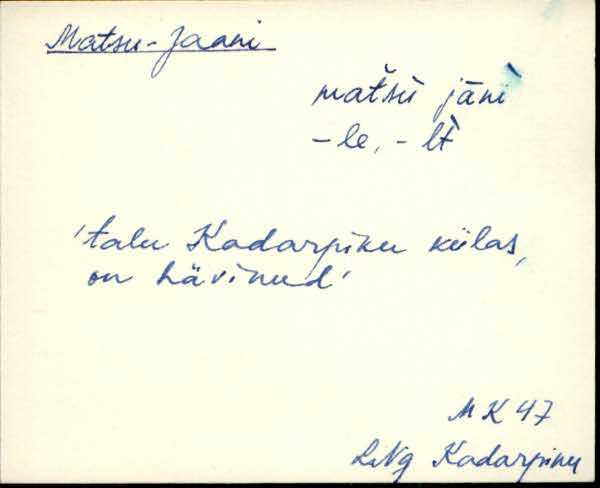 Matsu-Jaani
matsu jāni
-le, -lt
'talu Kadarpiku külas,
on hävinud'
MK 47
LNg Kadarpiku